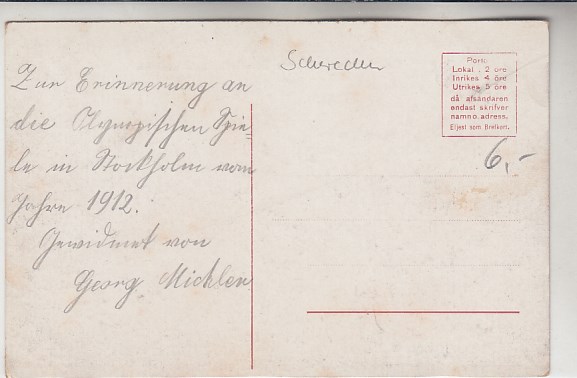 Schweden
Porto
Lokal . 2 öre
Inrikes 4 öre
Utrikes 5 öre
då afsändaren
endast skrifver
namn o. adress.
Eljest som Brefkort.
6,-
Zur Erinnerung an
die Olympischen Spie=
le in Stockholm vom
Jahre 1912.
Gewidmet von
Georg Michler